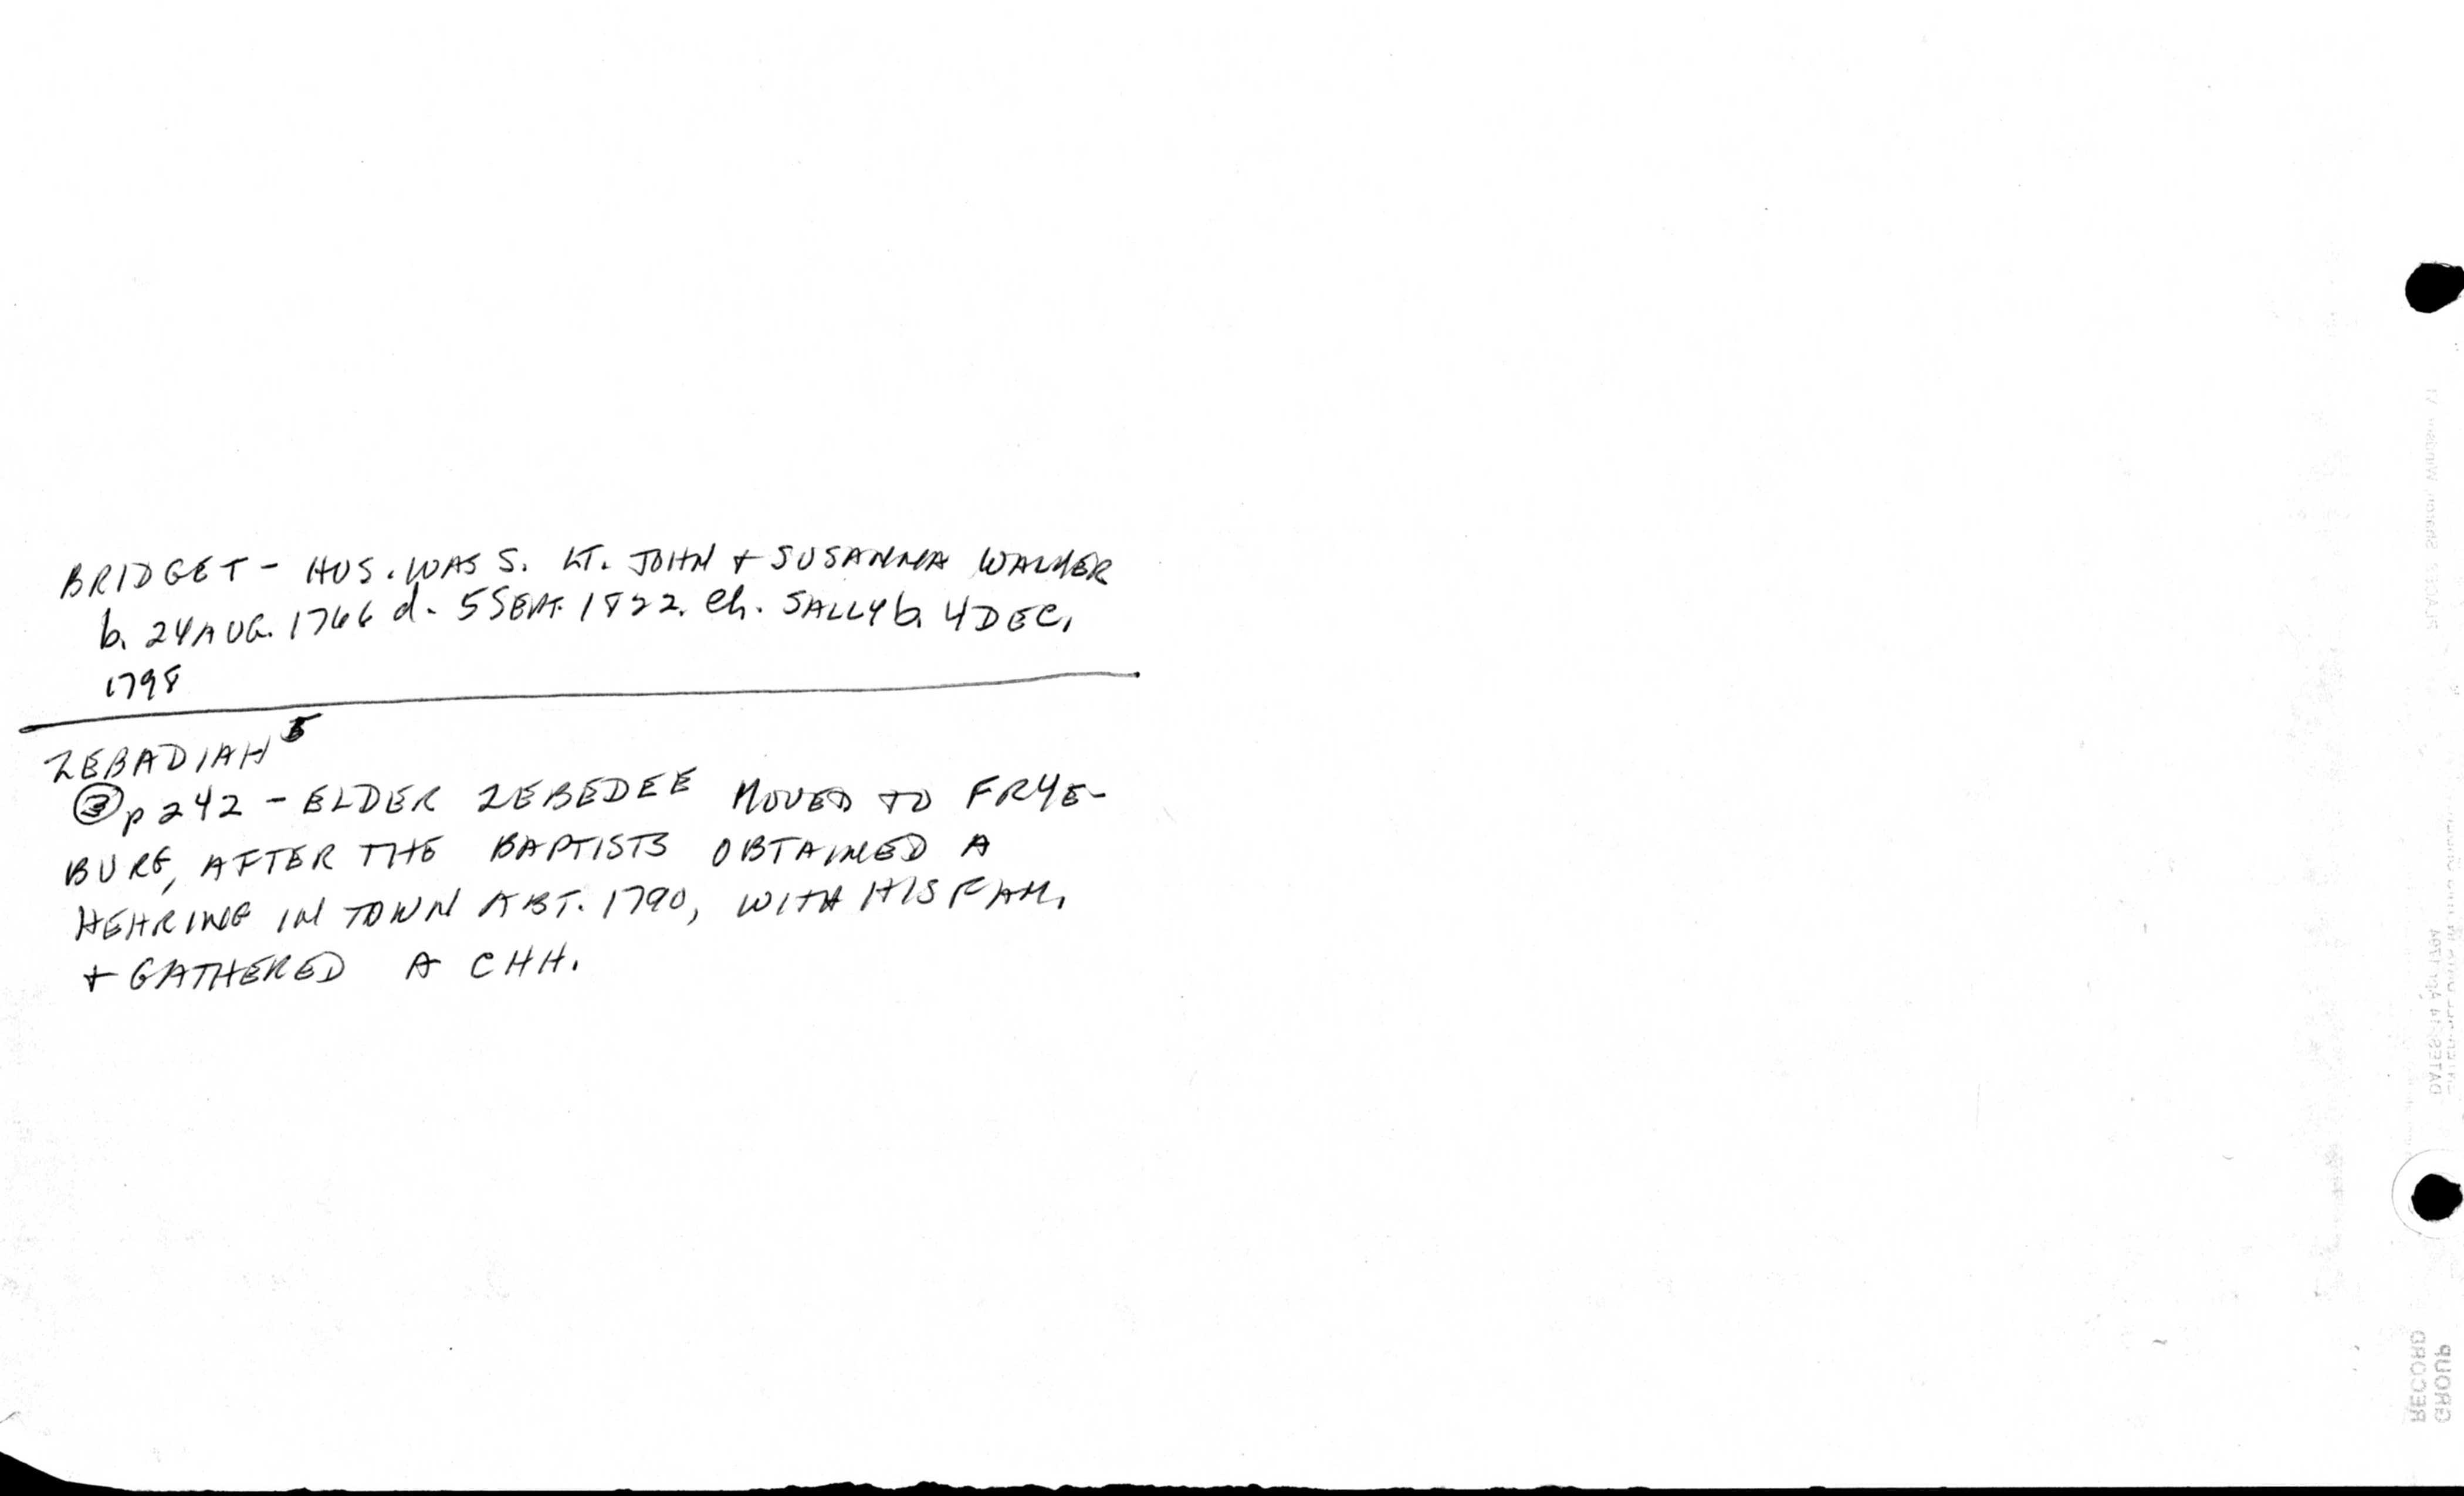 BRIDGET - HUS. WAS S. LT. JOHN + SUSANNA WALKER
b. 24 AUG. 1766 d. 5 SEPT. 1822. Ch. SALLY b. 4 DEC.
1798
ZEBADIAH 5
③ p 242 - ELDER ZEBEDEE MOVED TO FRYE-
BURG, AFTER THE BAPTISTS OBTAINED A
HEARING IN TOWN ABT. 1790, WITH HIS FAM.
+ GATHERED A CHH.
PLACES Sharon, Windsor, VT
DATES 14 Apr 1794
RECORD
GROUP